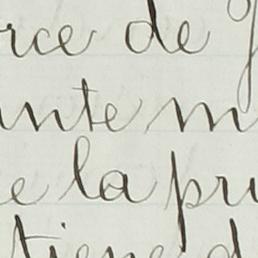 rce de
nte m
e la pr
tiens d